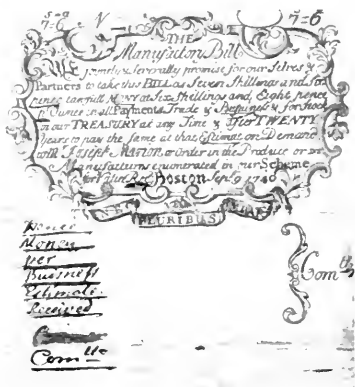 s d
7=6 V 7=6
THE
Manufactory Bill
jointly & severally promise for our Selves &
Partners to take this BILL as Seven Shillings and Six
pence Lawfull Money at Six Shillings and Eight pence
Ounce in all Payments Trade & Business & for Stock
in our TREASURY at any Time & after TWENTY
Years to pay the same at that Estimat on Demand
with Joseph or Order in the Produce or
Manufactures enumerated in our Scheme
Boston Sept 9 1740
PLURIBUS
Money
per
Business
Estimate
Received
Com tte
Com tt